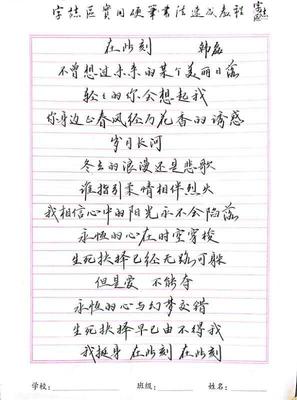 在此刻 韩磊
不曾想过未来的某个美丽日落
轻轻的你会想起我
你身边 春风经为花香的诱惑
岁月长河
冬去的浪漫还是悲歌
谁指引柔情相伴烈火
我相信心中的阳光永不会陷落
永恒的心在时空穿梭
生死抉择已经无路可躲
但是爱 不能夺
永恒的心与幻梦交错
生死抉择早已由不得我
我挺身 在此刻 在此刻
学校: 班级: 姓名: